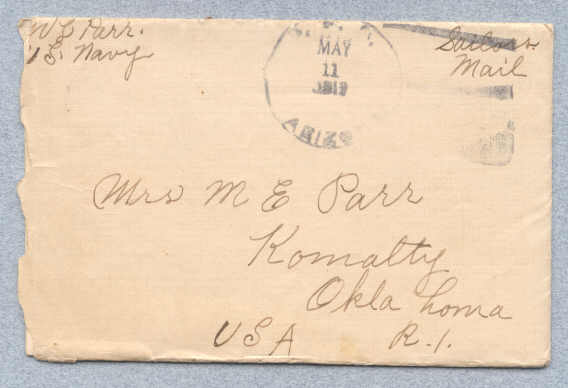 W L Parr.
U S. Navy
MAY
11
Sailors
Mail
Mrs M E Parr
Komalty
Oklahoma
U S A R. 1.